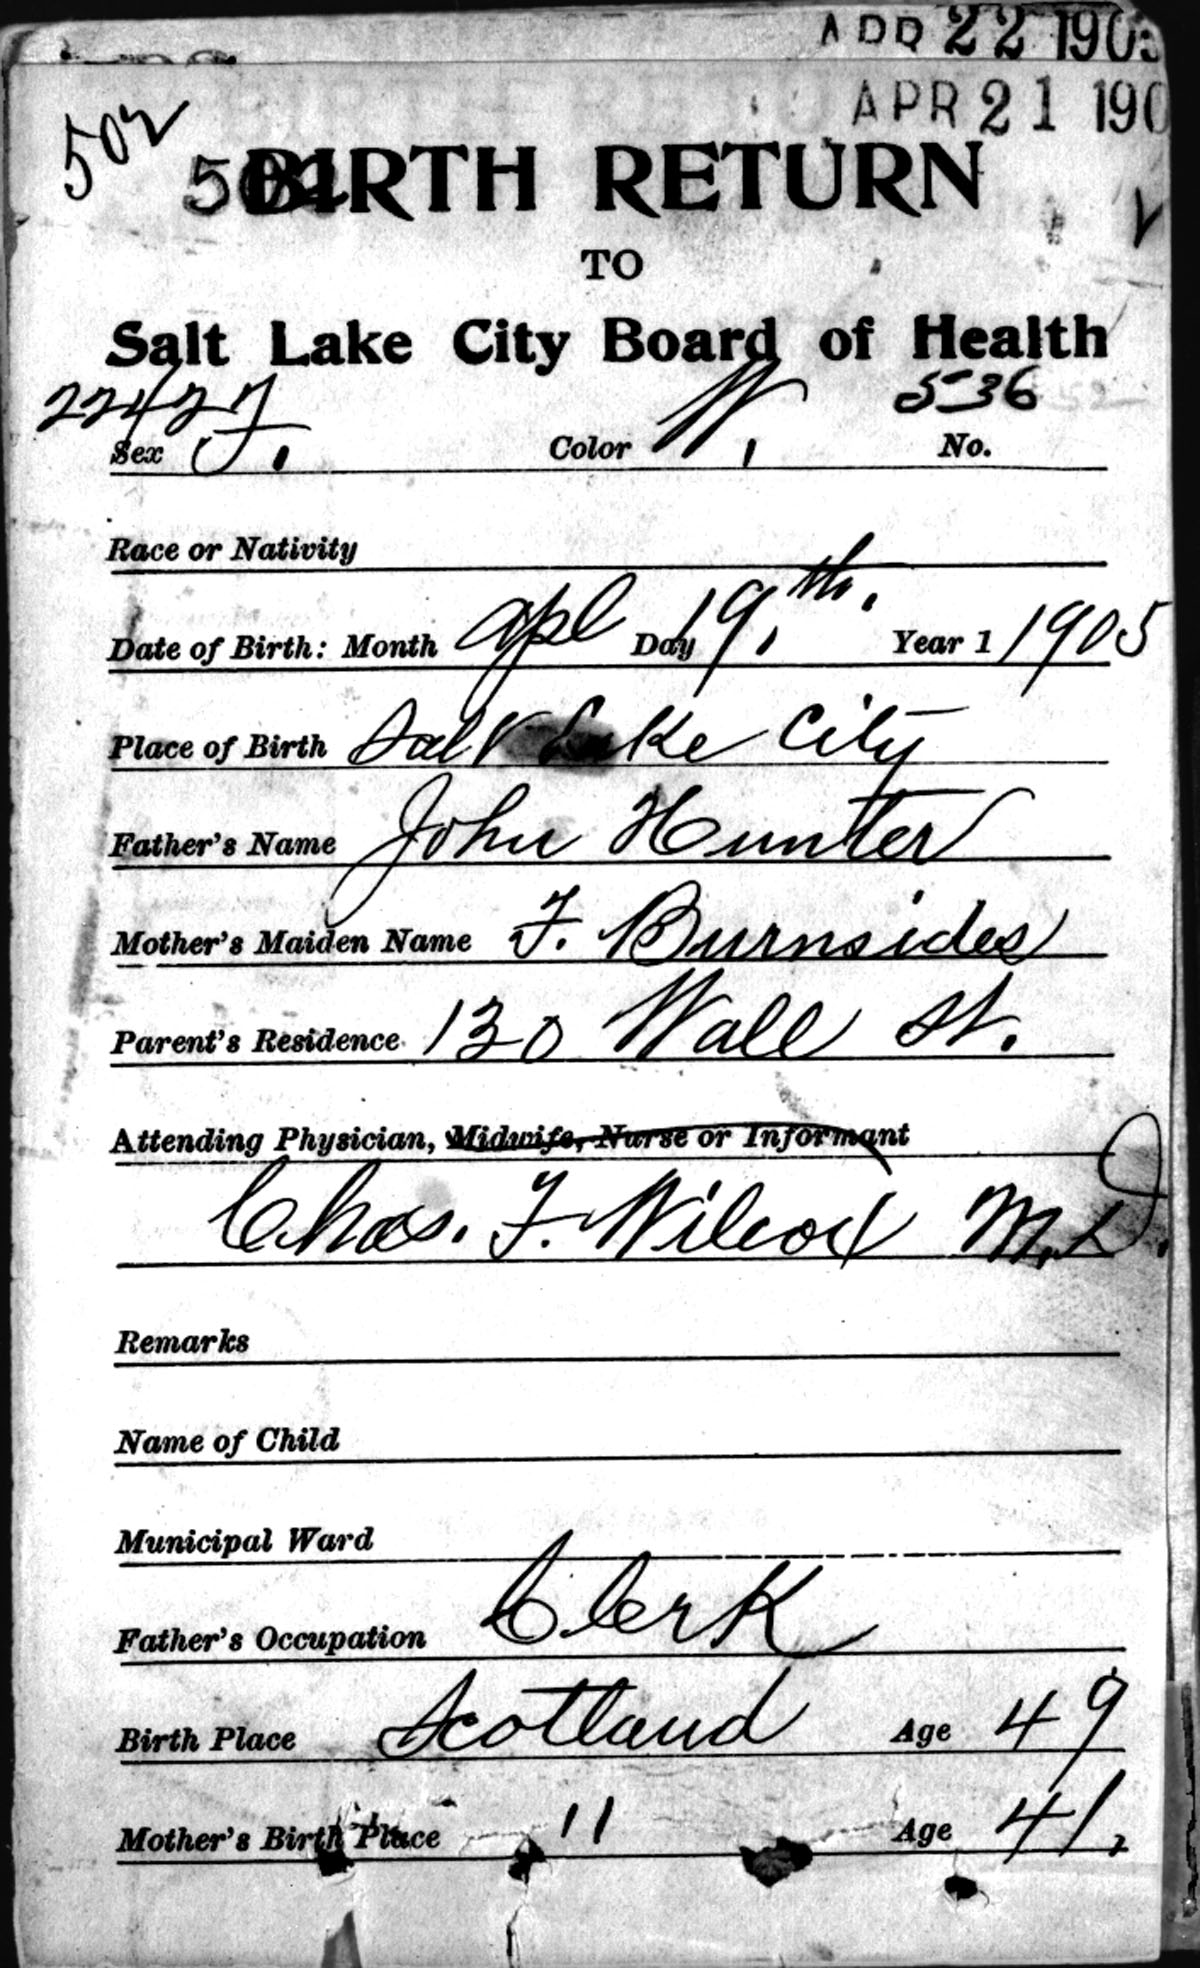 APR 22 1905
APR 21 190
502
502 BIRTH RETURN
TO
Salt Lake City Board of Health
22427 536
Sex F. Color W. No.
Race or Nativity
Date of Birth: Month Apl Day 19.th. Year 1 1905
Place of Birth Salt Lake City
Father's Name John Hunter
Mother's Maiden Name F. Burnsides
Parent's Residence 130 Wall St.
Attending Physician, Midwife, Nurse or Informant
Chas. F. Wilcox M.D.
Remarks
Name of Child
Municipal Ward
Father's Occupation Clerk
Birth Place Scotland Age 49
Mother's Birth Place " Age 41.